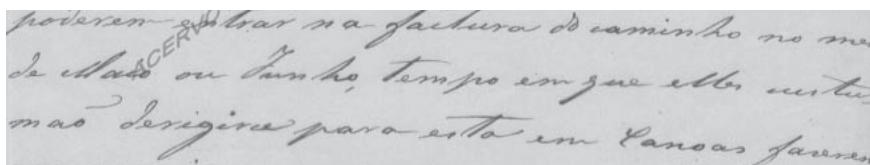 poderem entrar na factura do caminho no me
de Maio ou Junho, tempo em que elles custu
maõ derigirce para esta em Canoas fazerem
ACERVO